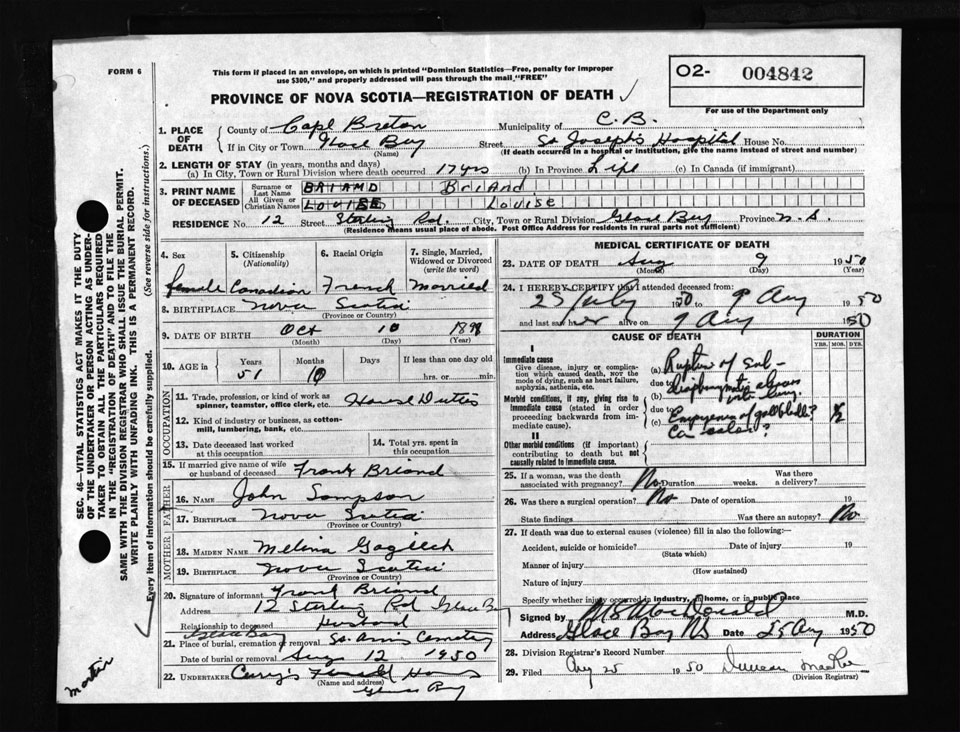 FORM 6
This form if placed in an envelope, on which is printed "Dominion Statistics—Free, penalty for improper
use $300," and properly addressed will pass through the mail "FREE"
O2- 004842
For use of the Department only
PROVINCE OF NOVA SCOTIA—REGISTRATION OF DEATH
1. PLACE OF DEATH
County of Cape Breton Municipality of C. B.
If in City or Town Glace Bay (Name) Street St Joseph's Hospital House No.
(If death occurred in a hospital or institution, give the name instead of street and number)
2. LENGTH OF STAY (in years, months and days)
(a) In City, Town or Rural Division where death occurred 17 yrs (b) In Province Life (c) In Canada (if immigrant)
3. PRINT NAME OF DECEASED
Surname or Last Name BRIAND Briand
All Given or Christian Names LOUISE Louise
RESIDENCE No. 12 Street Sterling Rd. City, Town or Rural Division Glace Bay Province N. S.
(Residence means usual place of abode. Post Office Address for residents in rural parts not sufficient)
4. Sex female
5. Citizenship (Nationality) Canadian
6. Racial Origin French
7. Single, Married, Widowed or Divorced (write the word) Married
8. BIRTHPLACE Nova Scotia
(Province or Country)
9. DATE OF BIRTH Oct 10
(Month) (Day) (Year)
10. AGE in Years 51 Months 10 Days If less than one day old
hrs. or min.
OCCUPATION
11. Trade, profession, or kind of work as
spinner, teamster, office clerk, etc. House Duties
12. Kind of industry or business, as cotton-
mill, lumbering, bank, etc.
13. Date deceased last worked
at this occupation
14. Total yrs. spent in
this occupation
15. If married give name of wife
or husband of deceased Frank Briand
FATHER
16. NAME John Sampson
17. BIRTHPLACE Nova Scotia
(Province or Country)
MOTHER
18. MAIDEN NAME Melina
19. BIRTHPLACE Nova Scotia
(Province or Country)
20. Signature of informant Frank Briand
Address 12 Sterling Rd Glace Bay
Relationship to deceased Husband
Glace Bay
21. Place of burial, cremation or removal St. Anns Cemetery
Date of burial or removal Aug 12 1950
22. UNDERTAKER Curry's Funeral Home
(Name and address)
Glace Bay
MEDICAL CERTIFICATE OF DEATH
23. DATE OF DEATH Aug 9 1950
(Month) (Day) (Year)
24. I HEREBY CERTIFY that I attended deceased from:
25 July 1950 to 9 Aug 1950
and last saw her alive on 9 Aug 1950
CAUSE OF DEATH
DURATION
YRS. MOS. DYS.
I
Immediate cause
Give disease, injury or complica-
tion which caused death, NOT the
mode of dying, such as heart failure,
asphyxia, asthenia, etc.
(a) Rupture of sub-
due to diaphragmatic abscess
(b) into lung.
Morbid conditions, if any, giving rise to
immediate cause (stated in order
proceeding backwards from im-
mediate cause).
due to
(c) Empyema of gallbladder?
II
Other morbid conditions (if important)
contributing to death but not
causally related to immediate cause.
25. If a woman, was the death
associated with pregnancy? No Duration weeks. Was there
a delivery?
26. Was there a surgical operation? No Date of operation 19
State findings Was there an autopsy? No
27. If death was due to external causes (violence) fill in also the following:—
Accident, suicide or homicide? Date of injury 19
(State which)
Manner of injury
(How sustained)
Nature of injury
Specify whether injury occurred in industry, in home, or in public place
Signed by MacDonald M.D.
Address Glace Bay NS Date 25 Aug 1950
28. Division Registrar's Record Number
29. Filed Aug 25 1950 Duncan
(Division Registrar)
SEC. 46—VITAL STATISTICS ACT MAKES IT THE DUTY
OF THE UNDERTAKER OR PERSON ACTING AS UNDER-
TAKER TO OBTAIN ALL THE PARTICULARS REQUIRED
IN THE "REGISTRATION OF DEATH" AND TO FILE THE
SAME WITH THE DIVISION REGISTRAR WHO SHALL ISSUE THE BURIAL PERMIT.
WRITE PLAINLY WITH UNFADING INK. THIS IS A PERMANENT RECORD.
Every item of information should be carefully supplied. (See reverse side for instructions.)